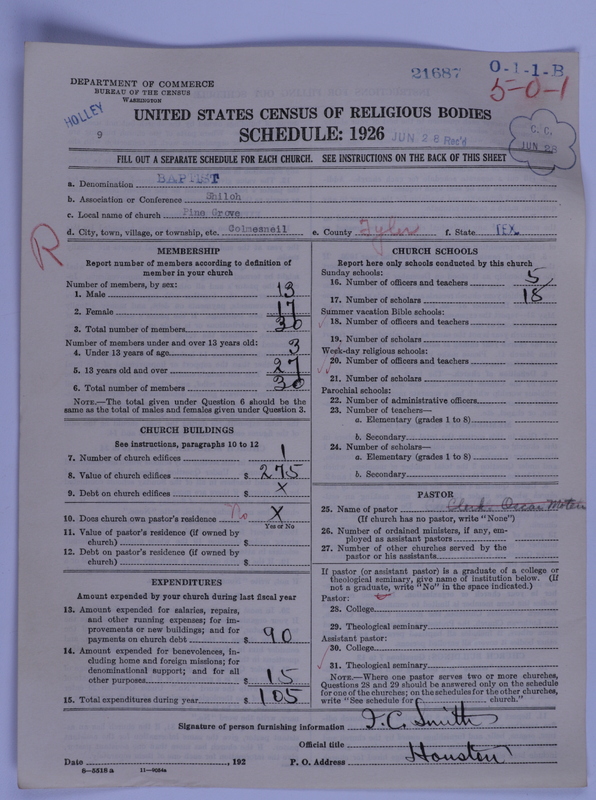 21687 O-1-1-B
5-0-1
DEPARTMENT OF COMMERCE
BUREAU OF THE CENSUS
WASHINGTON
HOLLEY
9
UNITED STATES CENSUS OF RELIGIOUS BODIES
SCHEDULE: 1926
JUN 28 Rec'd
C. C.
JUN 28
FILL OUT A SEPARATE SCHEDULE FOR EACH CHURCH. SEE INSTRUCTIONS ON THE BACK OF THIS SHEET
a. Denomination BAPTIST
b. Association or Conference Shiloh
c. Local name of church Pine Grove
d. City, town, village, or township, etc. Colmesneil e. County Tyler f. State TEX.
R
MEMBERSHIP
Report number of members according to definition of
member in your church
Number of members, by sex:
1. Male 13
2. Female 17
3. Total number of members 30
Number of members under and over 13 years old:
4. Under 13 years of age 3
5. 13 years old and over 27
6. Total number of members 30
NOTE.—The total given under Question 6 should be the
same as the total of males and females given under Question 3.
CHURCH BUILDINGS
See instructions, paragraphs 10 to 12
7. Number of church edifices 1
8. Value of church edifices $ 275
9. Debt on church edifices $ X
10. Does church own pastor's residence No X
Yes or No
11. Value of pastor's residence (if owned by
church) $
12. Debt on pastor's residence (if owned by
church) $
EXPENDITURES
Amount expended by your church during last fiscal year
13. Amount expended for salaries, repairs,
and other running expenses; for im-
provements or new buildings; and for
payments on church debt $ 90
14. Amount expended for benevolences, in-
cluding home and foreign missions; for
denominational support; and for all
other purposes $ 15
15. Total expenditures during year $ 105
CHURCH SCHOOLS
Report here only schools conducted by this church
Sunday schools:
16. Number of officers and teachers 5
17. Number of scholars 18
Summer vacation Bible schools:
18. Number of officers and teachers
19. Number of scholars
Week-day religious schools:
20. Number of officers and teachers
21. Number of scholars
Parochial schools:
22. Number of administrative officers
23. Number of teachers—
a. Elementary (grades 1 to 8)
b. Secondary
24. Number of scholars—
a. Elementary (grades 1 to 8)
b. Secondary
PASTOR
25. Name of pastor Clerk. Oscar
(If church has no pastor, write "None")
26. Number of ordained ministers, if any, em-
ployed as assistant pastors
27. Number of other churches served by the
pastor or his assistants
If pastor (or assistant pastor) is a graduate of a college or
theological seminary, give name of institution below. (If
not a graduate, write "No" in the space indicated.)
Pastor:
28. College
29. Theological seminary
Assistant pastor:
30. College
31. Theological seminary
NOTE.—Where one pastor serves two or more churches,
Questions 28 and 29 should be answered only on the schedule
for one of the churches; on the schedules for the other churches,
write "See schedule for church."
Signature of person furnishing information Smith
Official title
Date , 192 P. O. Address Houston
8—5518 a 11—9054a